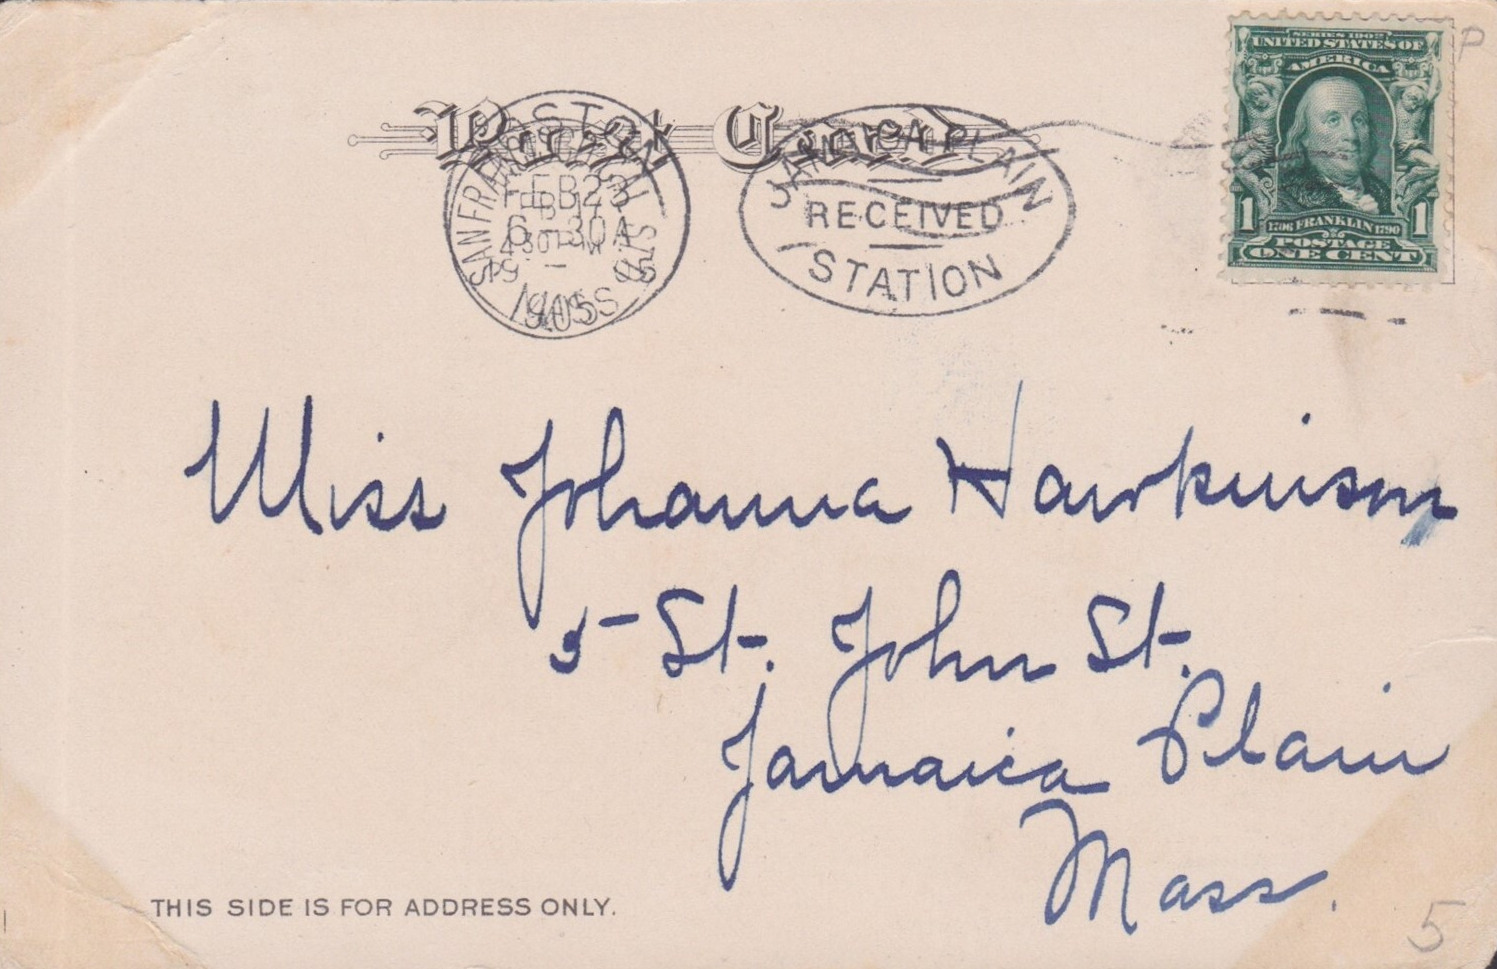 Post Card
SERIES 1902
UNITED STATES OF
AMERICA
1 1
1706 FRANKLIN 1790
POSTAGE
ONE CENT
P
BOSTON
SAN FRAN
FEB 23
6 30A
430 PM
1905
MASS
JAMAICA PLAIN
RECEIVED
STATION
Miss Johanna Hawkinson
5 St. John St.
Jamaica Plain
Mass.
THIS SIDE IS FOR ADDRESS ONLY.
5